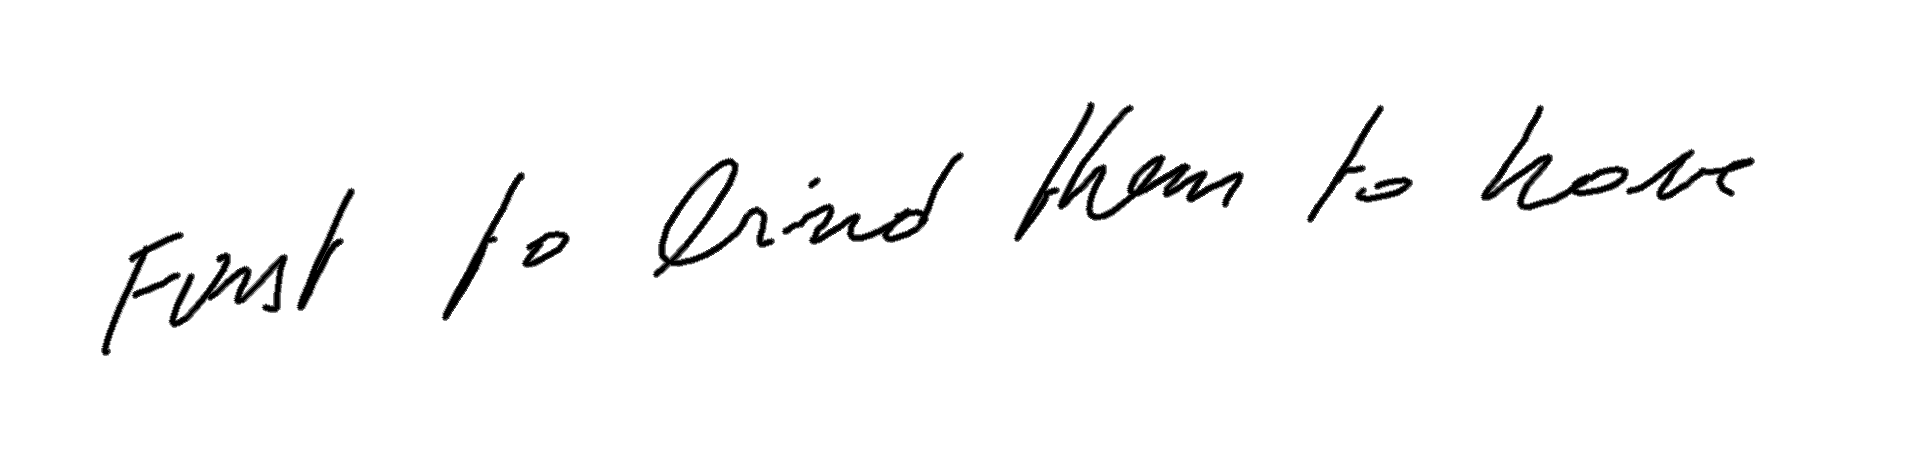 First to bind them to have